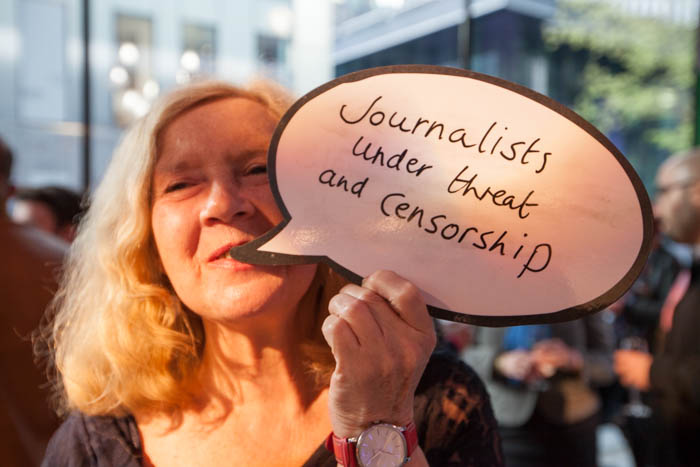 Journalists
under threat
and Censorship